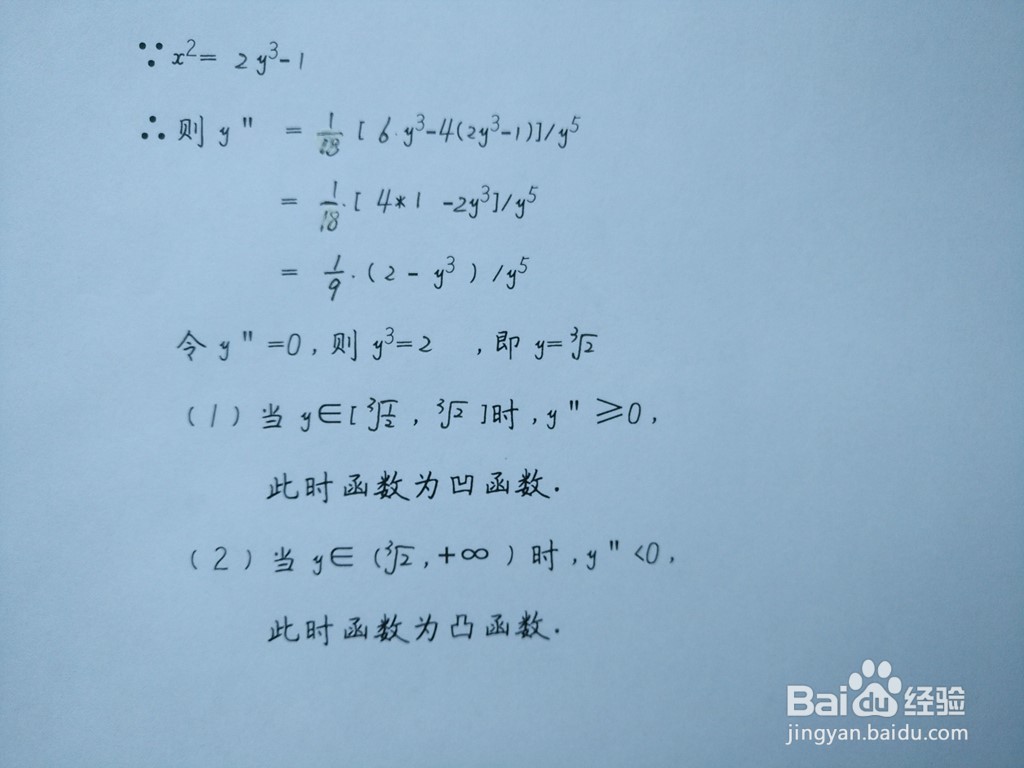 ∵ x²= 2y³-1
∴ 则 y" = 1/18 [ 6·y³-4(2y³-1)]/y⁵
= 1/18·[ 4*1 -2y³]/y⁵
= 1/9·(2 - y³ ) /y⁵
令 y" =0,则 y³=2 ,即 y=³√2
(1)当 y∈[ ³√(1/2) , ³√2 ]时,y" ≥0,
此时函数为凹函数.
(2)当 y∈ (³√2,+∞ ) 时,y" <0,
此时函数为凸函数.
Baidu经验
jingyan.baidu.com